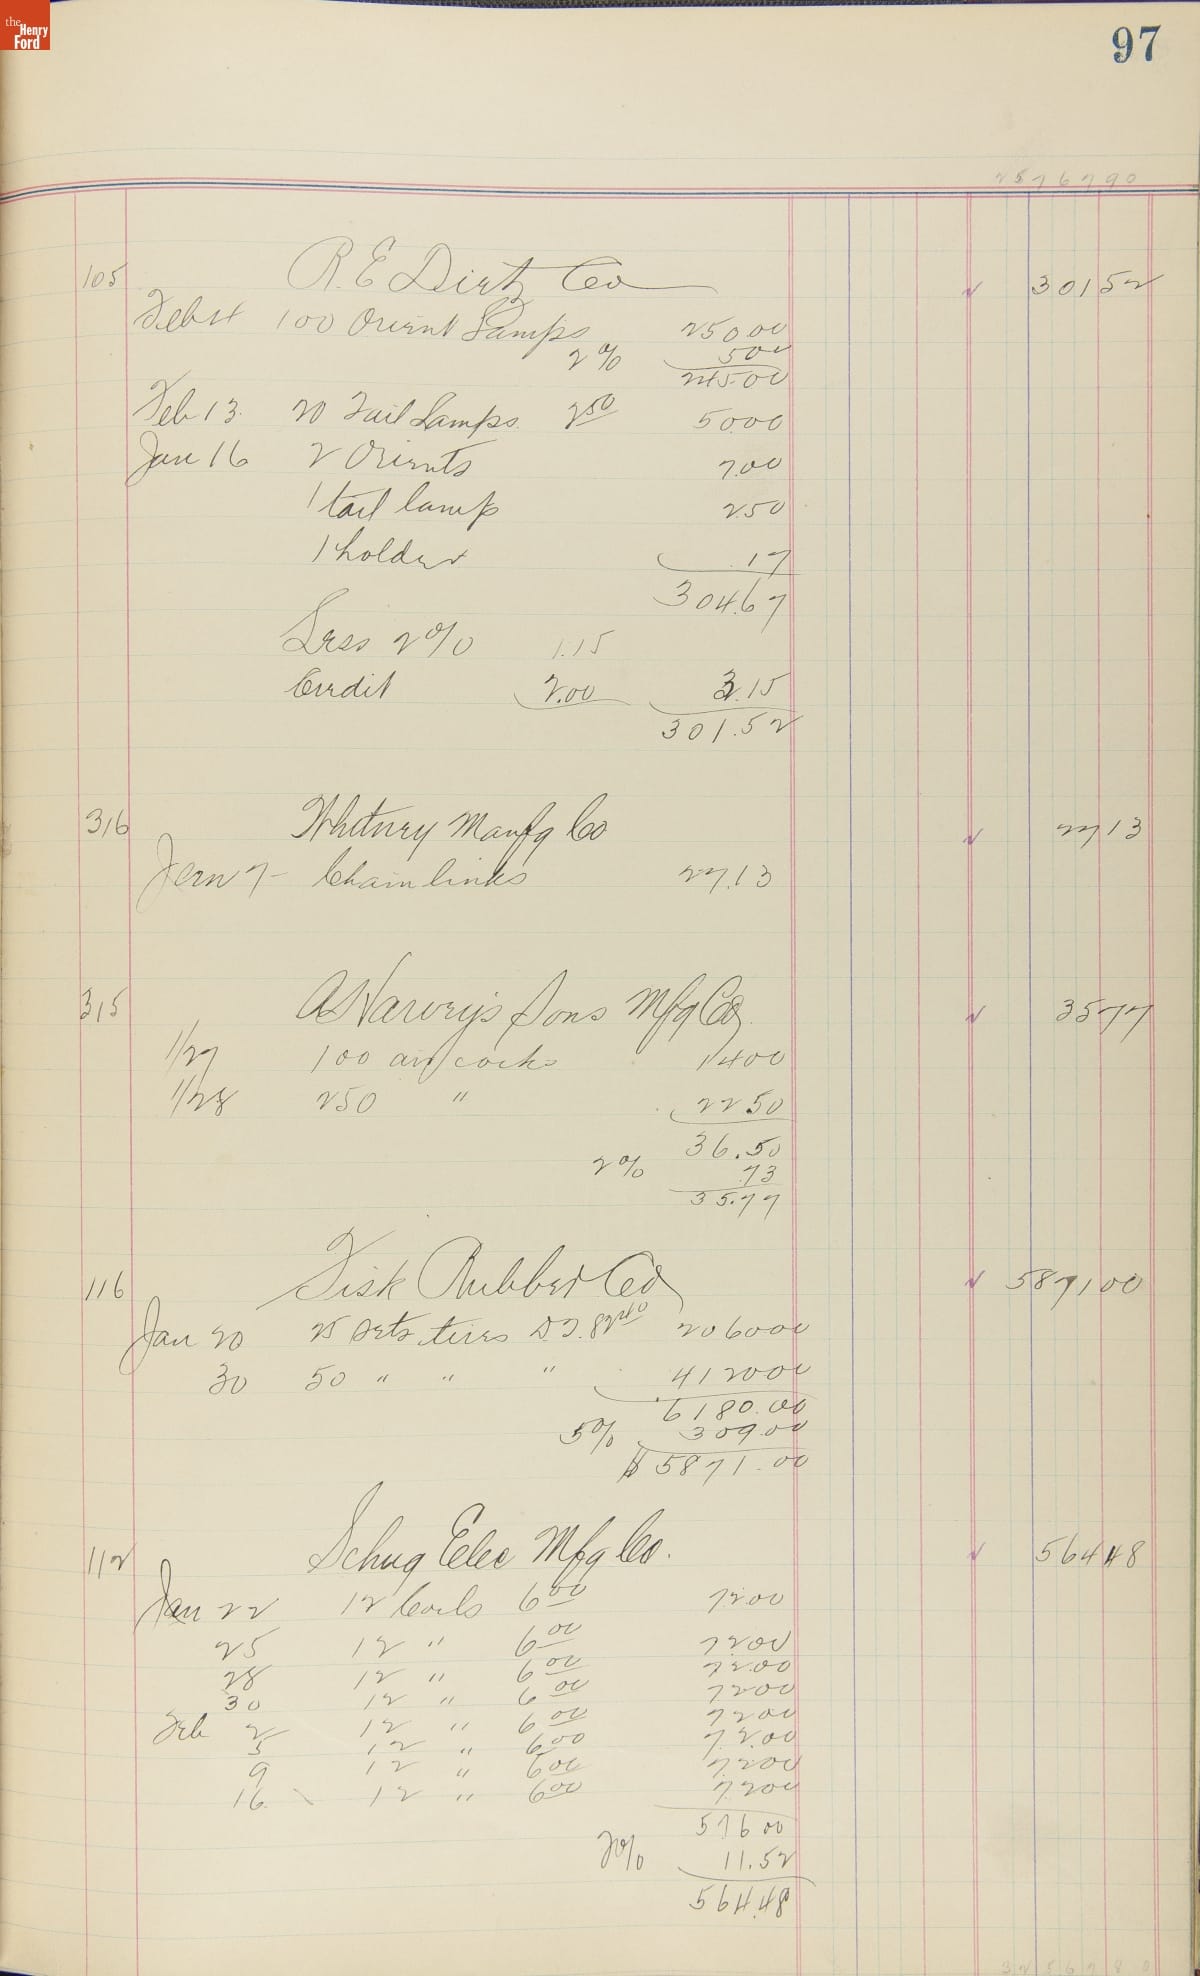 the Henry Ford
97
2576790
105 R. E Dietz Co 301 52
Feb 11 100 Orient Lamps 250 00
2% 5 00
245.00
Feb 13. 20 Tail Lamps. 2 50 50 00
Jan 16 2 Orients 7.00
1 tail lamp 2.50
1 holder .17
304.67
Less 2% 1.15
Credit 2.00 3.15
301.52
316 Whitney Manfg Co 27 13
Jan 7- Chain links 27.13
315 A Harvey's Sons Mfg Co. 35 77
1/27 100 air cocks 14 00
1/28 250 " 22 50
36.50
2% .73
35.77
116 Fisk Rubber Co 5871 00
Jan 20 25 Sets tires D.T. 82 40 2060 00
30 50 " " " 4120 00
6180.00
5% 309.00
$5871.00
112 Schug Elec Mfg Co. 564 48
Jan 22 12 Coils 6 00 72.00
25 12 " 6 00 72.00
28 12 " 6 00 72.00
30 12 " 6 00 72 00
Feb 2 12 " 6 00 72 00
5 12 " 6 00 72.00
9 12 " 6 00 72 00
16. 12 " 6 00 72 00
576 00
2% 11.52
564.48